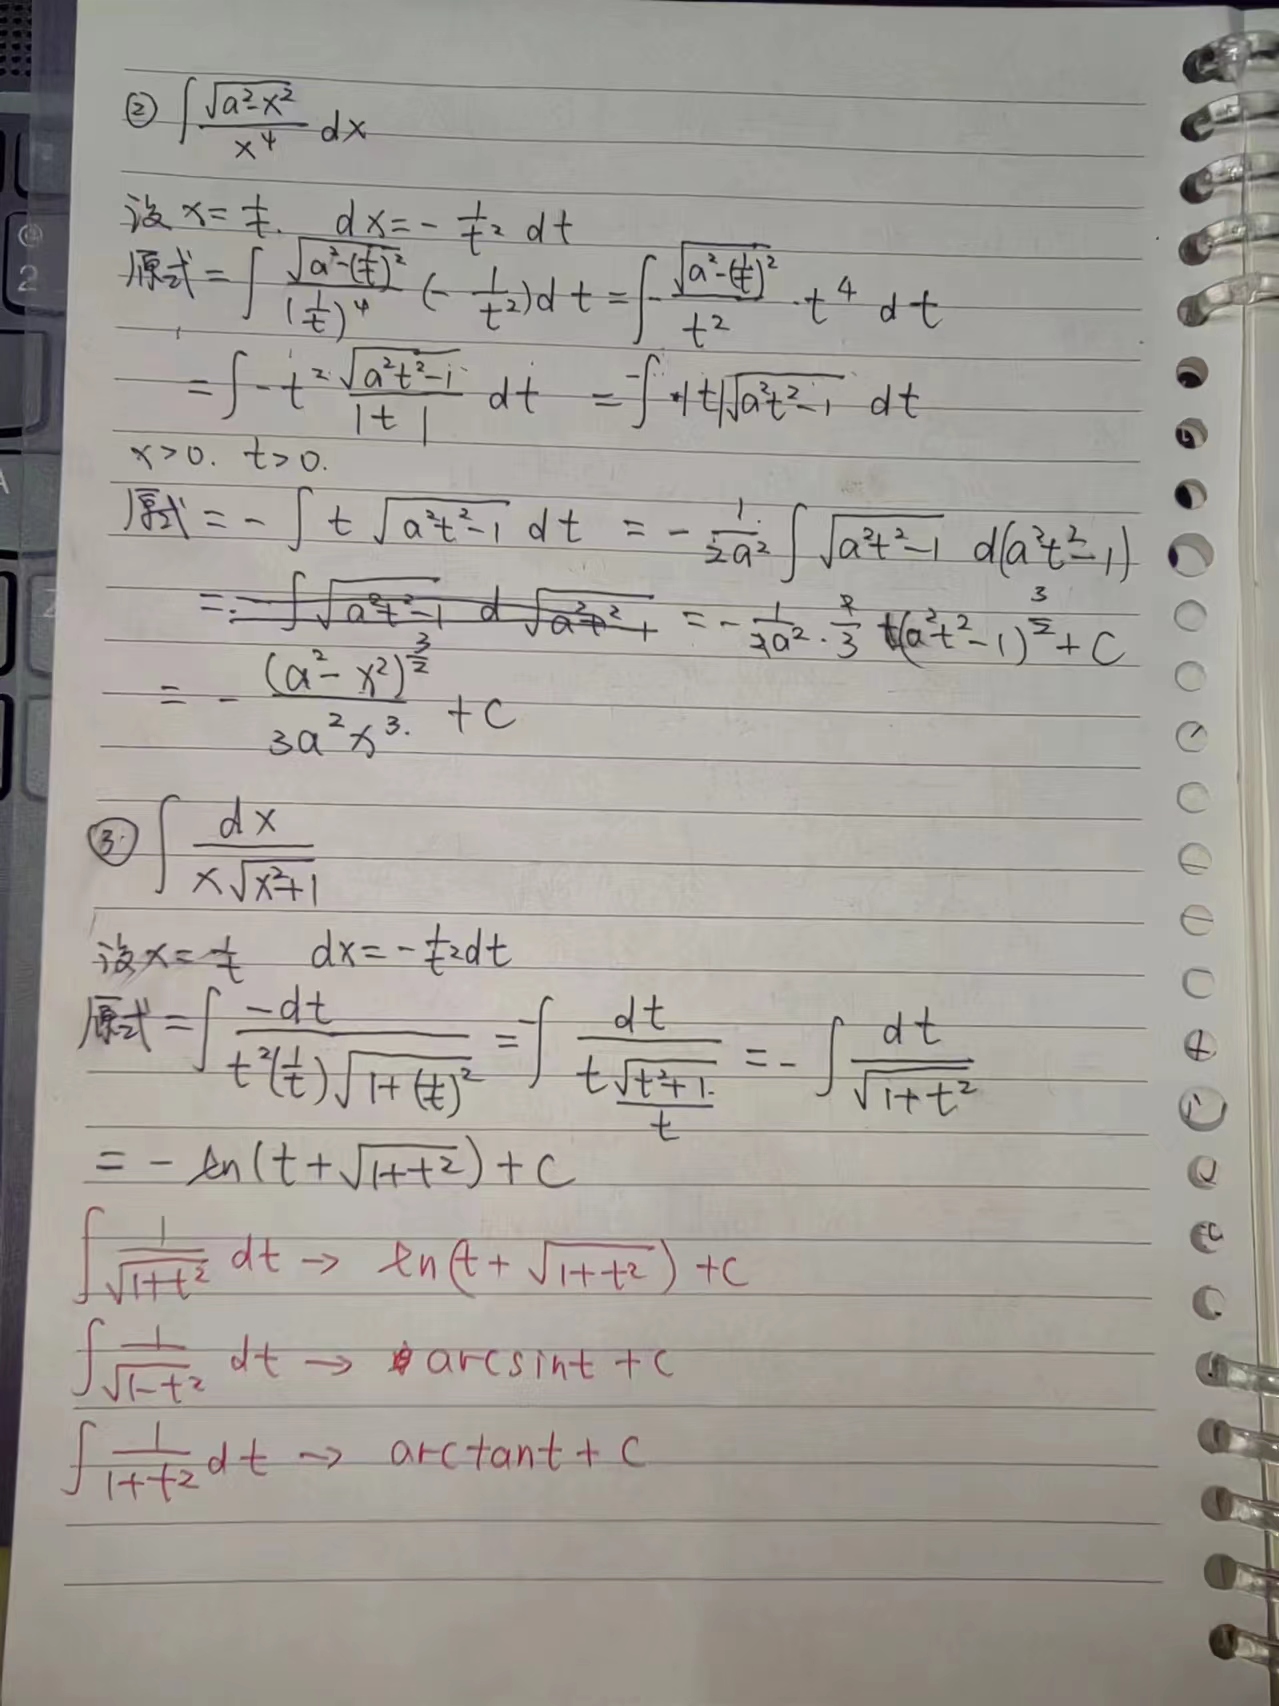 ② ∫ √(a²-x²)/x⁴ dx
设 x = 1/t. dx = - 1/t² dt
原式 = ∫ √(a²-(1/t)²)/(1/t)⁴ (- 1/t²) dt = ∫ - √(a²-(1/t)²)/t² · t⁴ dt
= ∫ -t² √(a²t²-1)/|t| dt = -∫ |t|√(a²t²-1) dt
x>0. t>0.
原式 = - ∫ t √(a²t²-1) dt = - 1/2a² ∫ √(a²t²-1) d(a²t²-1)
= - 1/2a² · 2/3 (a²t²-1)^(3/2) + C
= - (a²-x²)^(3/2)/3a²x³ + C
③ ∫ dx/x√(x²+1)
设 x = 1/t dx = - 1/t² dt
原式 = ∫ -dt/t²(1/t)√(1+(1/t)²) = -∫ dt/t √(t²+1)/t = - ∫ dt/√(1+t²)
= - ln(t+√(1+t²)) + C
∫ 1/√(1+t²) dt → ln(t+√(1+t²)) + C
∫ 1/√(1-t²) dt → arcsint + C
∫ 1/1+t² dt → arctant + C
@
2